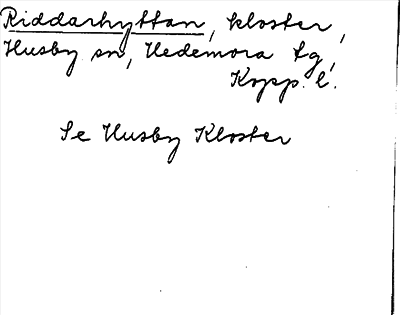 Riddarhyttan, kloster,
Husby sn, Hedemora tg,
Kopp. l.
Se Husby Kloster